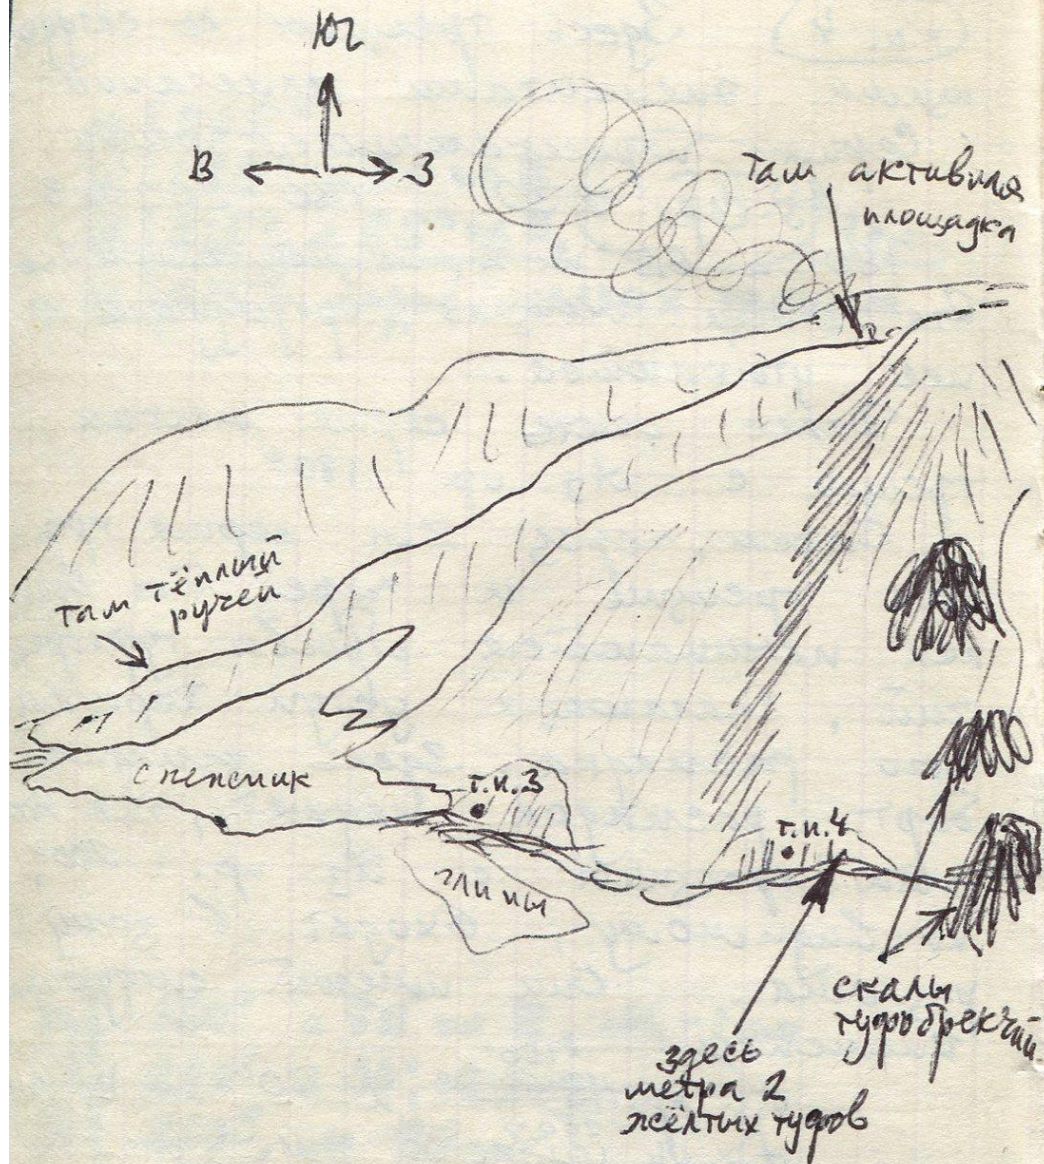 Юг
В З
там активная
площадка
там тёплый
ручей
снежник
т.н.3
т.н.4
глины
скалы
туфобрекчий
здесь
метра 2
жёлтых туфов